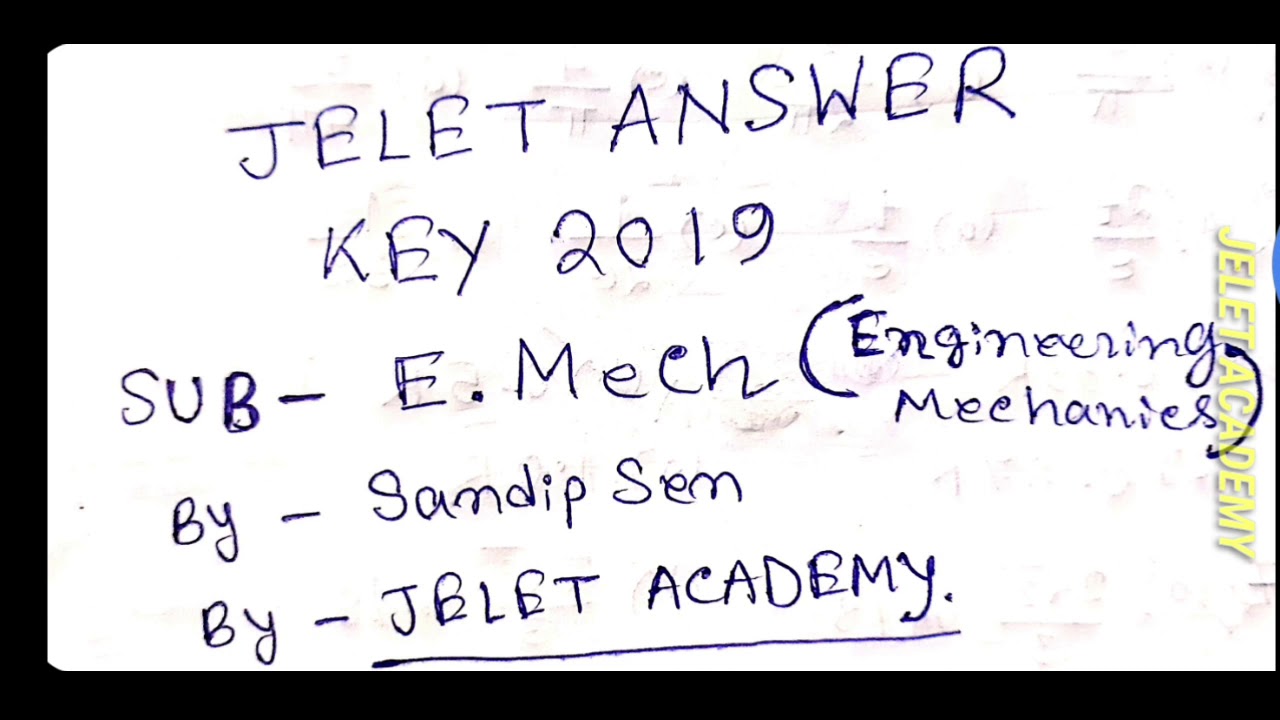 JELET ANSWER
KEY 2019
SUB - E. Mech (Engineering
Mechanics)
By - Sandip Sen
By - JELET ACADEMY.
JELET ACADEMY